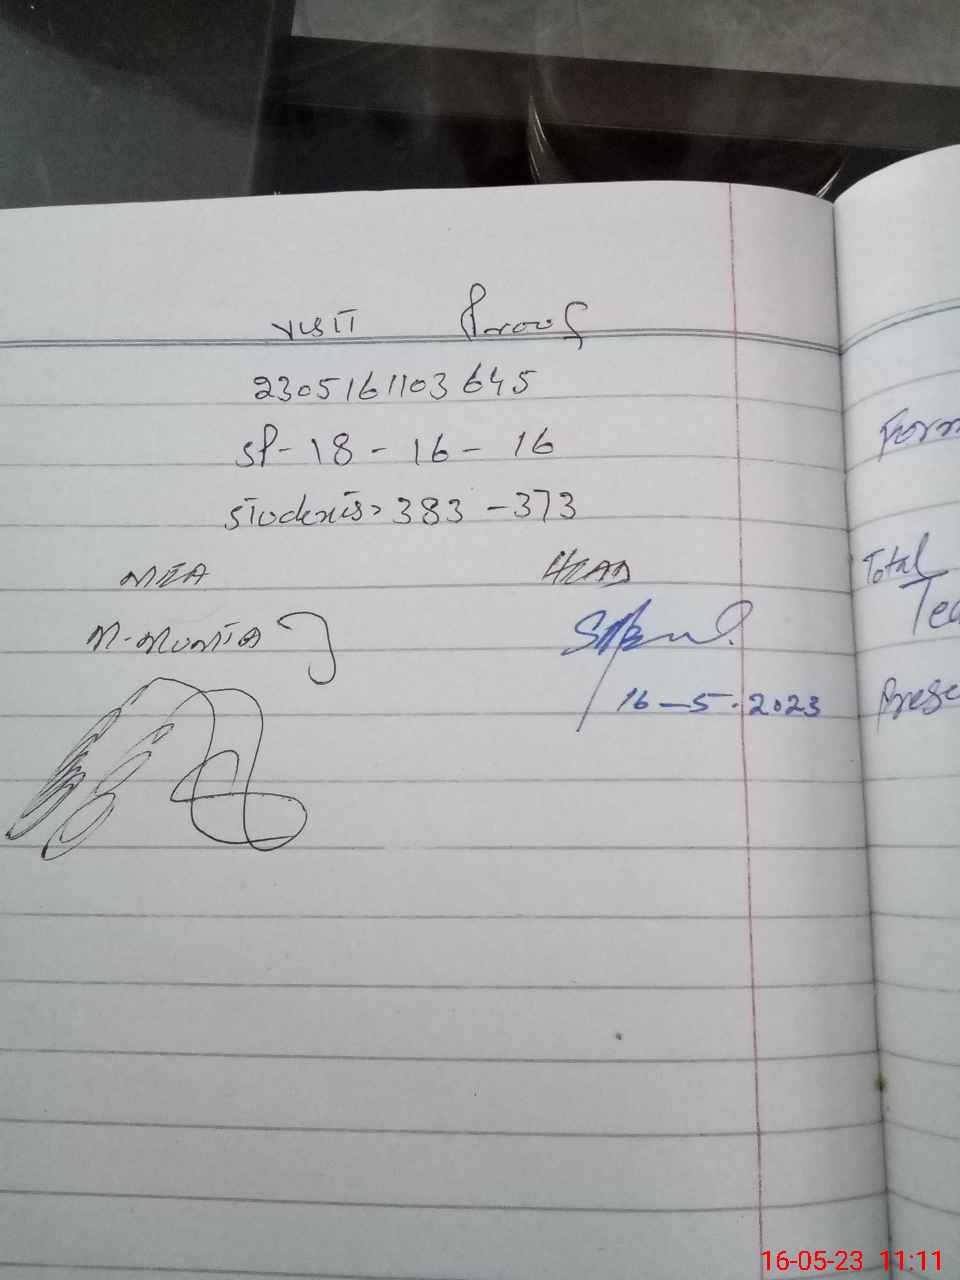 VISIT Proof
2305161103645
SP-18-16-16
Students> 383-373
MEA HEAD
16-5.2023
Form
Total
Tea
Prese
16-05-23 11:11